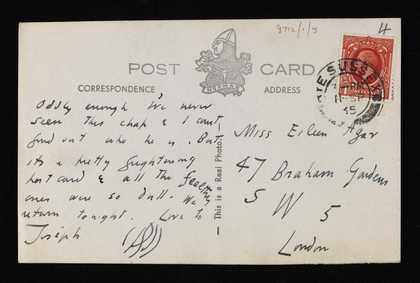 8712/1/5
4
POST CARD
CORRESPONDENCE
ADDRESS
SUSSEX
35
Oddly enough I've never
seen this chap & I can't
find out who he is. But
its a pretty frightening
post card & all the
ones were so dull. We
return tonight. Love to
Joseph
This is a Real Photo.
Miss Eileen Agar
47 Braham Gardens
S W 5
London